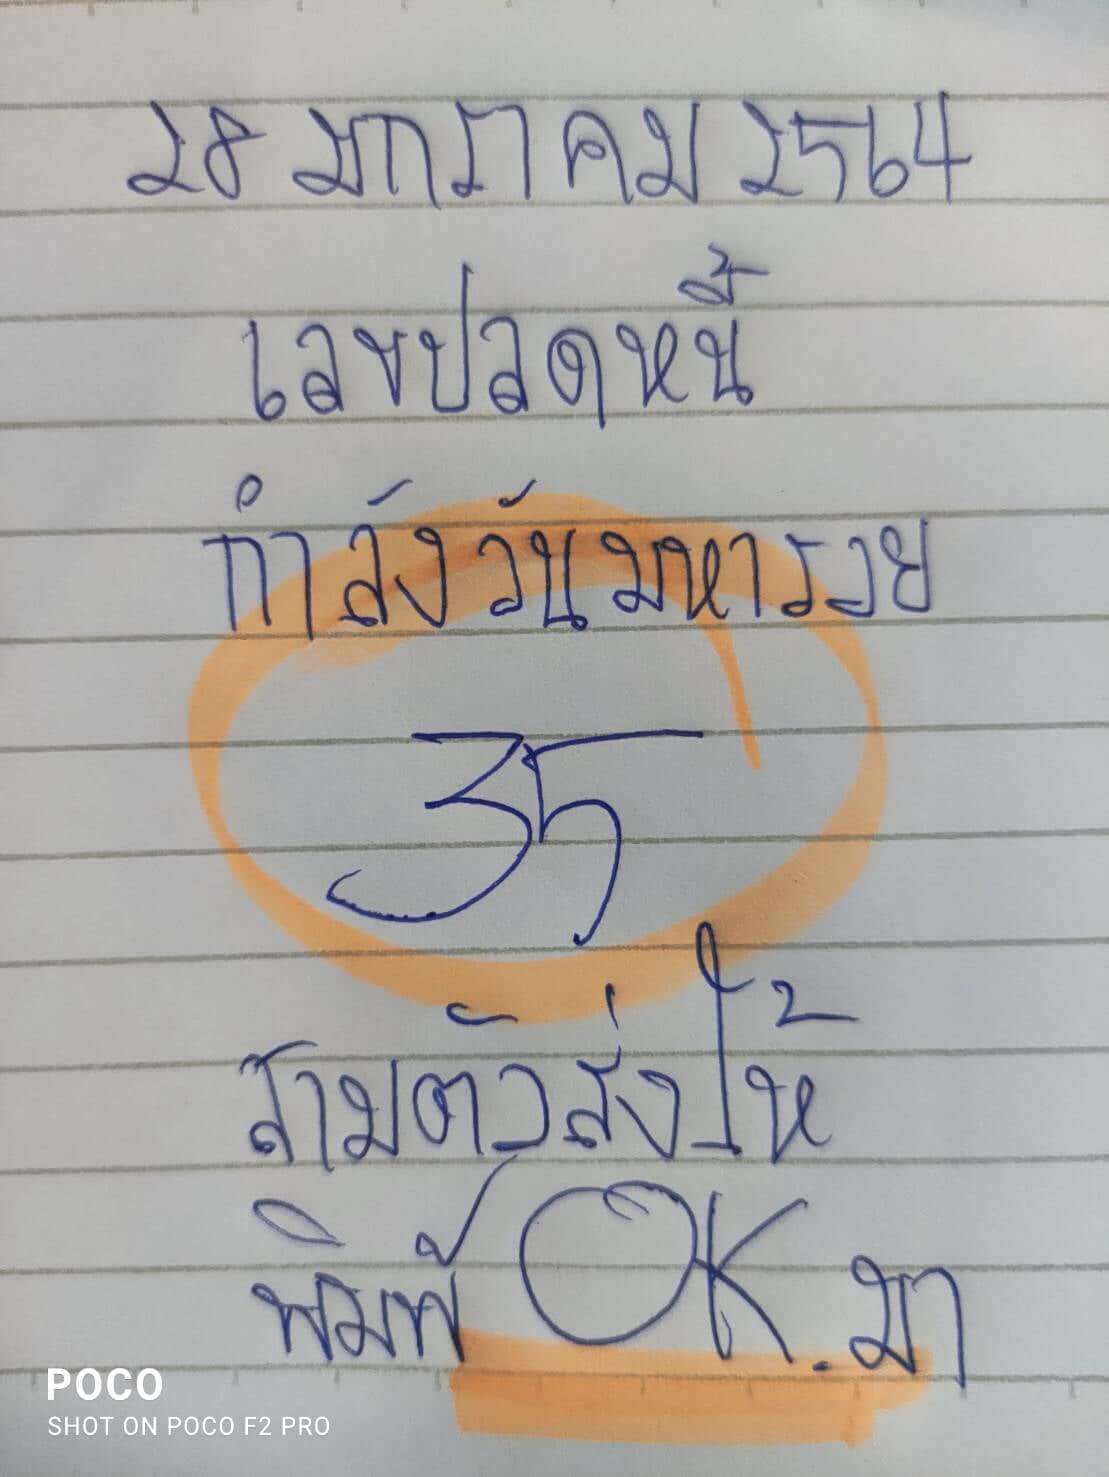 28 มกราคม 2564
เลขปลดหนี้
กำลังวันมหารวย
35
สามตัวส่งให้
พิมพ์ OK. มา
POCO
SHOT ON POCO F2 PRO